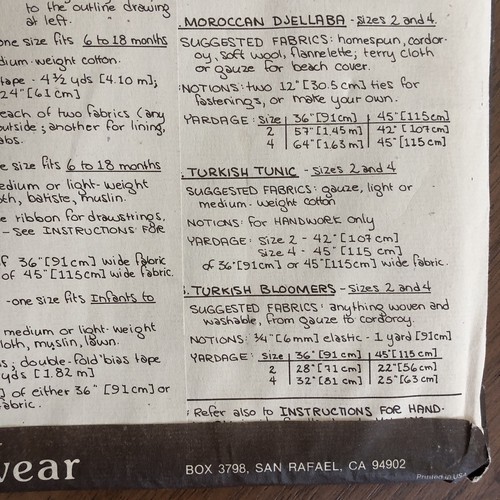 to the outline drawing
at left.
one size fits 6 to 18 months
dium weight cotton.
tape - 4½ yds [4.10 m];
24" [61 cm]
each of two fabrics (any
outside; another for lining,
abs.
e size fits 6 to 18 months
edium or light-weight
oth, batiste, muslin.
e ribbon for drawstrings,
- SEE INSTRUCTIONS FOR
f 36" [91cm] wide fabric
of 45" [115cm] wide fabric.
-one size fits Infants to
medium or light-weight
loth, muslin, lawn.
s; double-fold bias tape
yds [1.82 m]
] of either 36" [91cm] or
abric.
MOROCCAN DJELLABA - Sizes 2 and 4
SUGGESTED FABRICS: homespun, cordur-
oy, soft wool, flannelette; terry cloth
or gauze for beach cover.
NOTIONS: two 12" [30.5 cm] ties for
fastenings, or make your own.
YARDAGE: Size 36" [91cm] 45" [115cm]
2 57" [1.45 m] 42" [107cm]
4 64" [1.63 m] 45" [115cm]
TURKISH TUNIC - Sizes 2 and 4
SUGGESTED FABRICS: gauze, light or
medium-weight cotton
NOTIONS: for HANDWORK only
YARDAGE: Size 2 - 42" [107 cm]
Size 4 - 45" [115 cm]
of 36" [91cm] or 45" [115cm] wide fabric.
TURKISH BLOOMERS - Sizes 2 and 4
SUGGESTED FABRICS: anything woven and
washable, from gauze to corduroy.
NOTIONS: ¾" [6mm] elastic - 1 yard [91cm]
YARDAGE: Size 36" [91 cm] 45" [115cm]
2 28" [71 cm] 22" [56 cm]
4 32" [81 cm] 25" [63 cm]
Refer also to INSTRUCTIONS FOR HAND-
wear
BOX 3798, SAN RAFAEL, CA 94902
Printed in USA